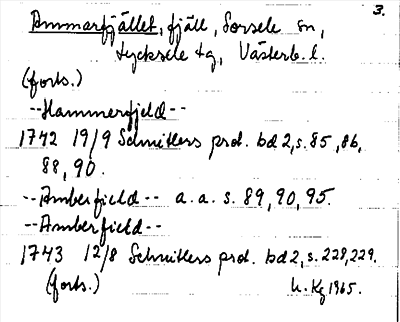 3.
Ammarfjället, fjäll, Sorsele sn,
Lycksele tg, Västerb. l.
(forts.)
--Hammerfjeld--
1742 19/9 Schnitlers prot. bd 2, s. 85, 86,
88, 90.
--Amberfield-- a. a. s. 89, 90, 95.
--Amberfield--
1743 12/8 Schnitlers prot. bd 2, s. 228, 229.
(forts.) h. Kg 1965.